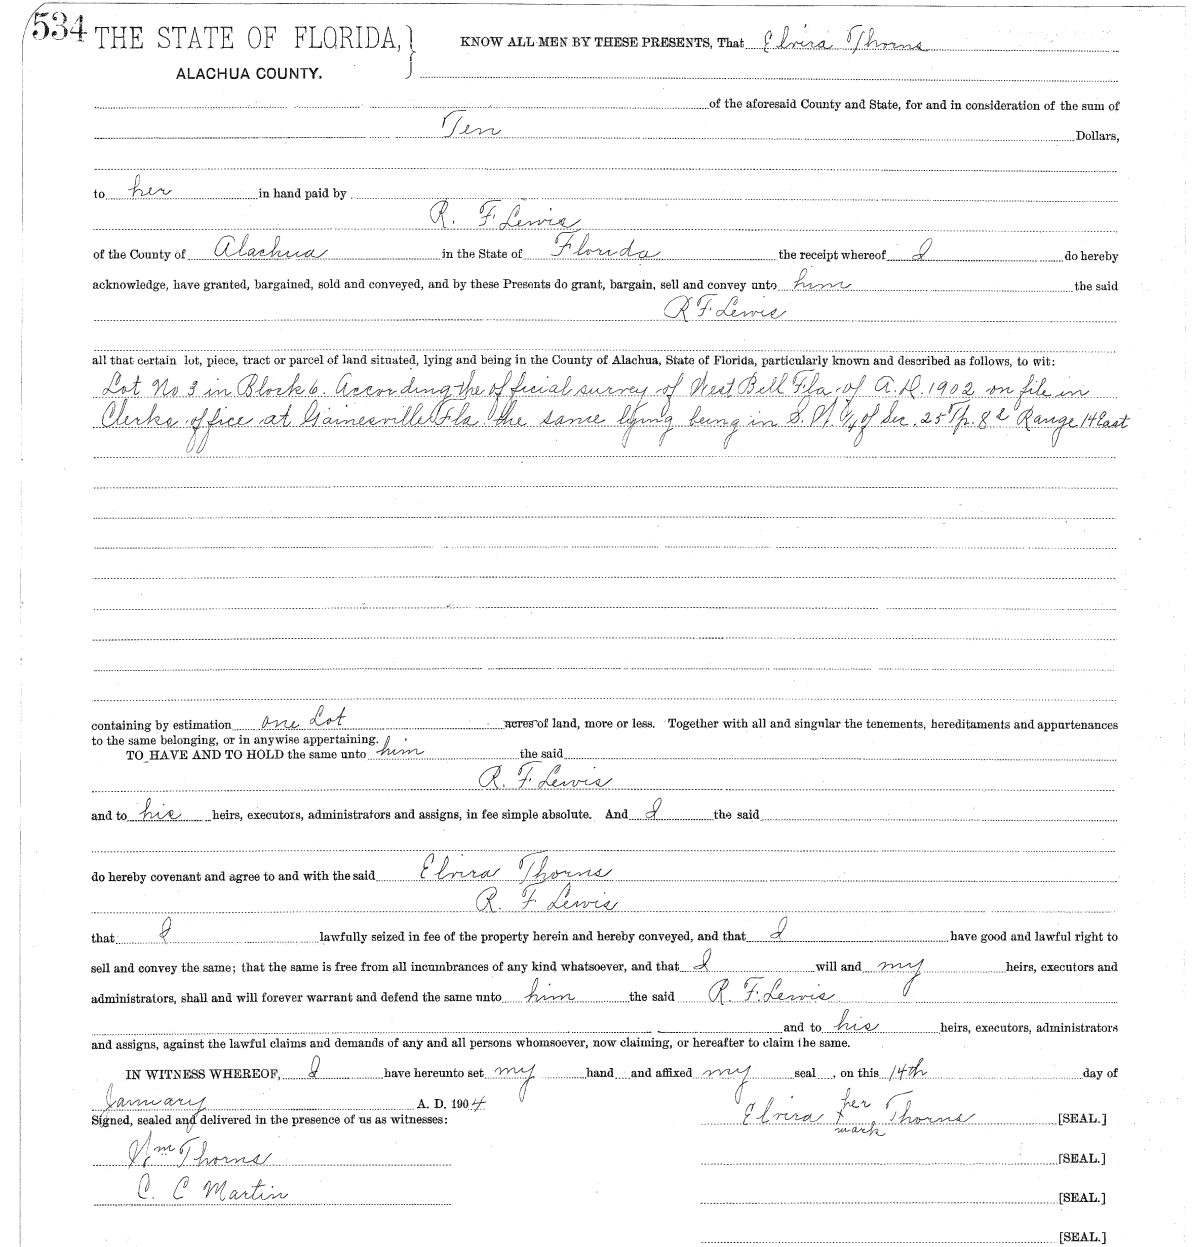 534 THE STATE OF FLORIDA, } KNOW ALL MEN BY THESE PRESENTS, That Elvira Thorns
ALACHUA COUNTY.
of the aforesaid County and State, for and in consideration of the sum of
Ten Dollars,
to her in hand paid by
R. F. Lewis
of the County of Alachua in the State of Florida the receipt whereof I do hereby
acknowledge, have granted, bargained, sold and conveyed, and by these Presents do grant, bargain, sell and convey unto him the said
R F Lewis
all that certain lot, piece, tract or parcel of land situated, lying and being in the County of Alachua, State of Florida, particularly known and described as follows, to wit:
Lot No 3 in Block 6. According the official survey of West Bell Fla. of A.D. 1902 on file in
Clerks office at Gainesville Fla. the same lying being in S.W. 1/4 of Sec. 25 Tp. 8 Range 14 East
containing by estimation one Lot acres of land, more or less. Together with all and singular the tenements, hereditaments and appurtenances
to the same belonging, or in anywise appertaining.
TO HAVE AND TO HOLD the same unto him the said
R. F. Lewis
and to his heirs, executors, administrators and assigns, in fee simple absolute. And I the said
do hereby covenant and agree to and with the said Elvira Thorns
R. F. Lewis
that I lawfully seized in fee of the property herein and hereby conveyed, and that I have good and lawful right to
sell and convey the same; that the same is free from all incumbrances of any kind whatsoever, and that I will and my heirs, executors and
administrators, shall and will forever warrant and defend the same unto him the said R. F. Lewis
and to his heirs, executors, administrators
and assigns, against the lawful claims and demands of any and all persons whomsoever, now claiming, or hereafter to claim the same.
IN WITNESS WHEREOF, I have hereunto set my hand and affixed my seal, on this 14th day of
January A. D. 1904
Signed, sealed and delivered in the presence of us as witnesses: Elvira her Thorns [SEAL.]
mark
Wm Thorns [SEAL.]
C. C Martin [SEAL.]
[SEAL.]